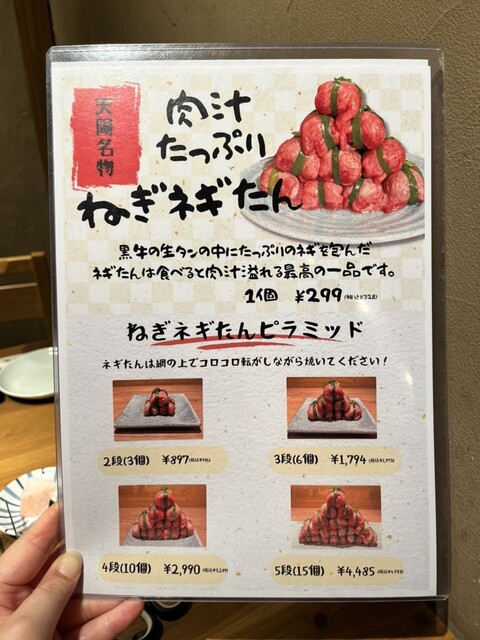 天陽名物
肉汁
たっぷり
ねぎネギたん
黒牛の生タンの中にたっぷりのネギを包んだ
ネギたんは食べると肉汁溢れる最高の一品です。
1個 ¥299(税込¥328)
ねぎネギたんピラミッド
ネギたんは網の上でコロコロ転がしながら焼いてください！
2段(3個) ¥897
3段(6個) ¥1,794(税込¥1,973)
4段(10個) ¥2,990(税込¥3,289)
5段(15個) ¥4,485(税込¥4,933)